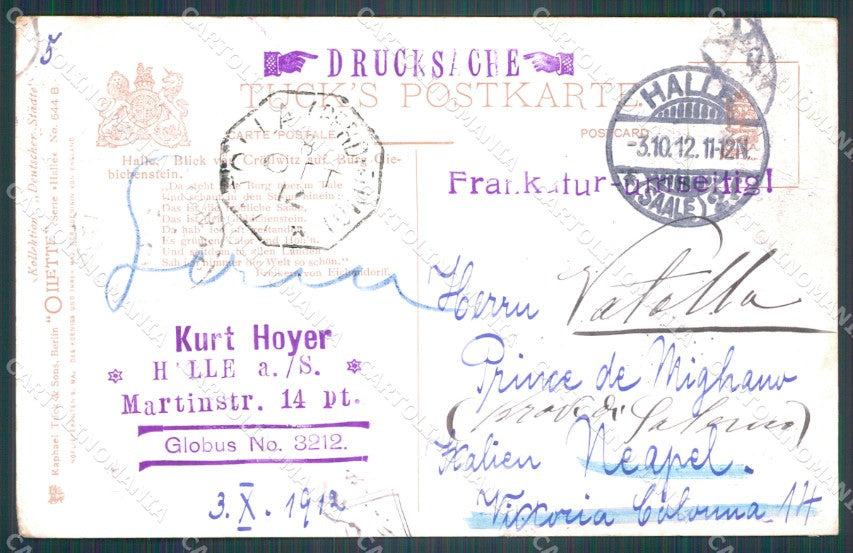 5
DRUCKSACHE
TUCK'S POSTKARTE
CARTE POSTALE
POSTCARD
HALLE
-3.10.12.11-12N.
(SAALE) 2
Frankatur-umseitig!
Halle. Blick von Cröllwitz auf Burg Gie-
bichenstein.
"Da steht eine Burg über'm Tale
Und schaut in den Strom hinein:
Das ist die fröhliche Saale,
Das ist Giebichenstein.
Da hab' ich oft gestanden,
Es grünten Täler und Höh'n,
Und seitdem in allen Landen
Sah ich nimmer die Welt so schön."
Freiherr von Eichendorff.
Kollektion „Deutscher Städte"
"OILETTE" Serie «Halle» No. 644 B.
Raphael Tuck & Sons, Berlin
Kurt Hoyer
HALLE a./S.
Martinstr. 14 pt.
Globus No. 3212.
3. X. 1912
Herrn
Vatolla
Prince de Mighano
(prov di Salerno)
Italien Neapel.
Vittoria Colonna 14
CARTOLINOMANIA